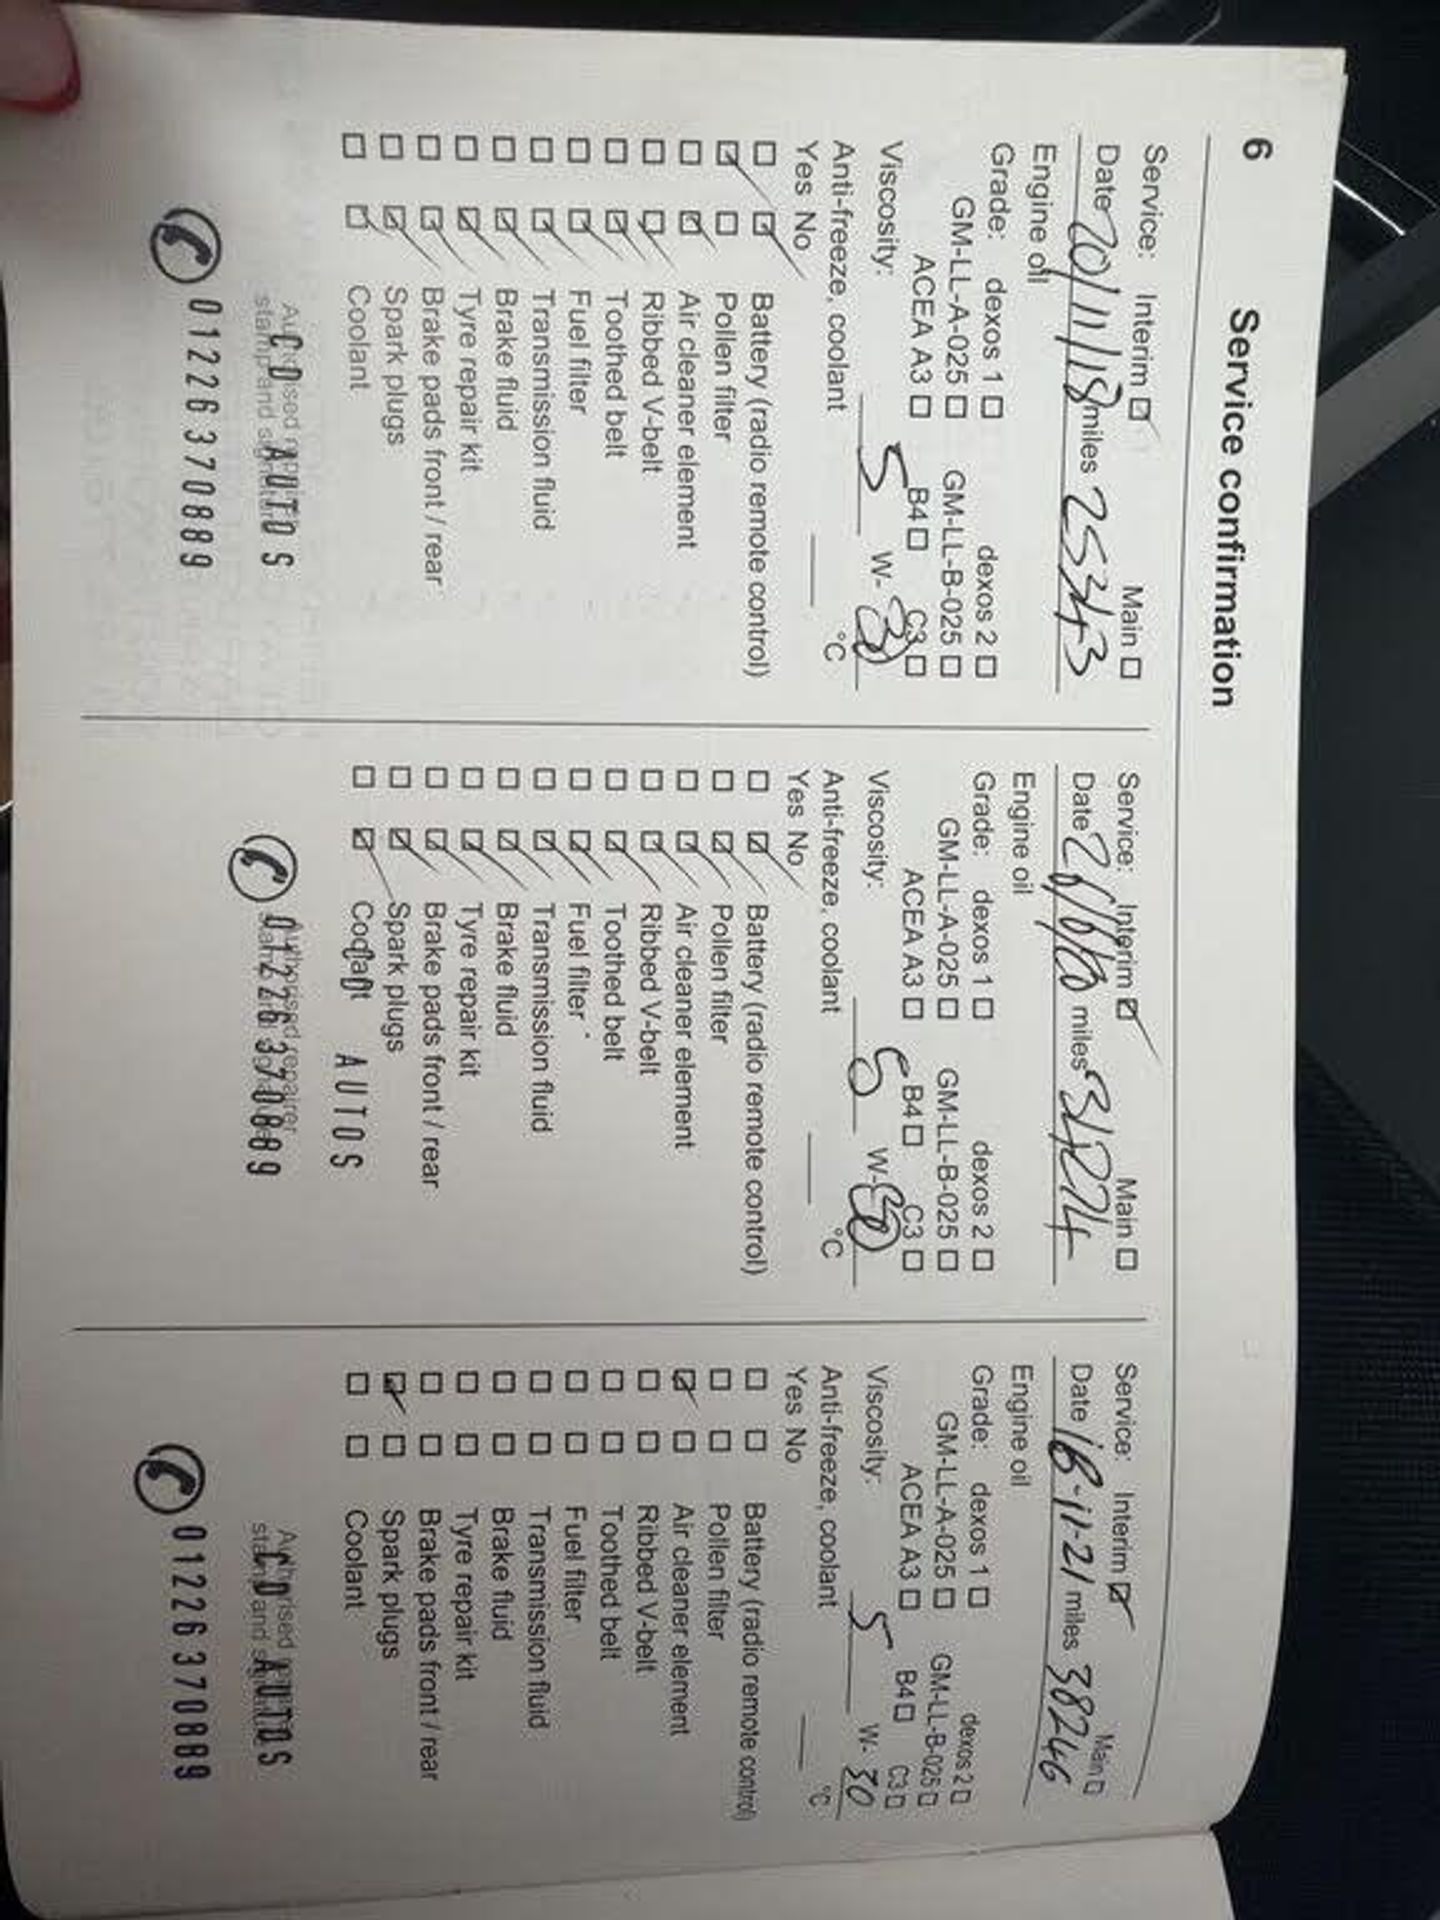 6 Service confirmation
Service: Interim ☑ Main ☐
Date 20/11/18 miles 25343
Engine oil
Grade: dexos 1 ☐ dexos 2 ☐
GM-LL-A-025 ☐ GM-LL-B-025 ☐
ACEA A3 ☐ B4 ☐ C3 ☐
Viscosity: 5 W- 30
Anti-freeze, coolant °C
Yes No
☐ ☑ Battery (radio remote control)
☑ ☐ Pollen filter
☐ ☑ Air cleaner element
☐ ☑ Ribbed V-belt
☐ ☑ Toothed belt
☐ ☑ Fuel filter
☐ ☑ Transmission fluid
☐ ☑ Brake fluid
☐ ☑ Tyre repair kit
☐ ☑ Brake pads front / rear
☐ ☑ Spark plugs
☐ ☑ Coolant
C D AUTOS
01226370889
Service: Interim ☑ Main ☐
Date miles 31274
Engine oil
Grade: dexos 1 ☐ dexos 2 ☐
GM-LL-A-025 ☐ GM-LL-B-025 ☐
ACEA A3 ☐ B4 ☐ C3 ☐
Viscosity: 5 W- 30
Anti-freeze, coolant °C
Yes No
☐ ☑ Battery (radio remote control)
☐ ☑ Pollen filter
☐ ☑ Air cleaner element
☐ ☑ Ribbed V-belt
☐ ☑ Toothed belt
☐ ☑ Fuel filter
☐ ☑ Transmission fluid
☐ ☑ Brake fluid
☐ ☑ Tyre repair kit
☐ ☑ Brake pads front / rear
☐ ☑ Spark plugs
☐ ☑ Coolant
C D AUTOS
Authorised repairer
01226370889
Service: Interim ☑ Main ☐
Date 18-11-21 miles 38246
Engine oil
Grade: dexos 1 ☐ dexos 2 ☐
GM-LL-A-025 ☐ GM-LL-B-025 ☐
ACEA A3 ☐ B4 ☐ C3 ☐
Viscosity: 5 W- 30
Anti-freeze, coolant °C
Yes No
☐ ☐ Battery (radio remote control)
☐ ☐ Pollen filter
☑ ☐ Air cleaner element
☐ ☐ Ribbed V-belt
☐ ☐ Toothed belt
☐ ☐ Fuel filter
☐ ☐ Transmission fluid
☐ ☐ Brake fluid
☐ ☐ Tyre repair kit
☐ ☐ Brake pads front / rear
☑ ☐ Spark plugs
☐ ☐ Coolant
C D AUTOS
01226370889